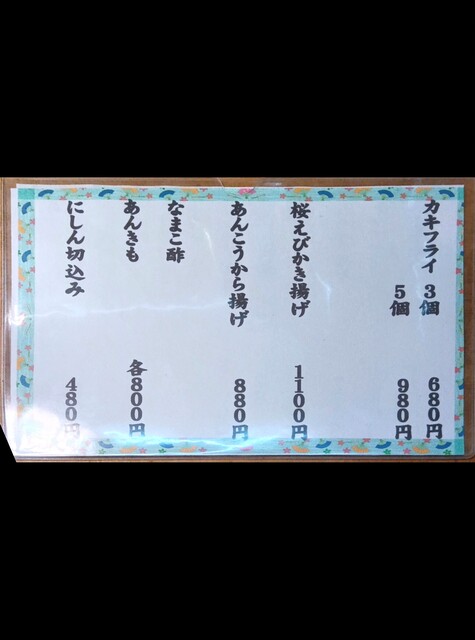 カキフライ 3個 680円
5個 980円
桜えびかき揚げ 1100円
あんこうから揚げ 880円
なまこ酢
あんきも 各800円
にしん切込み 480円